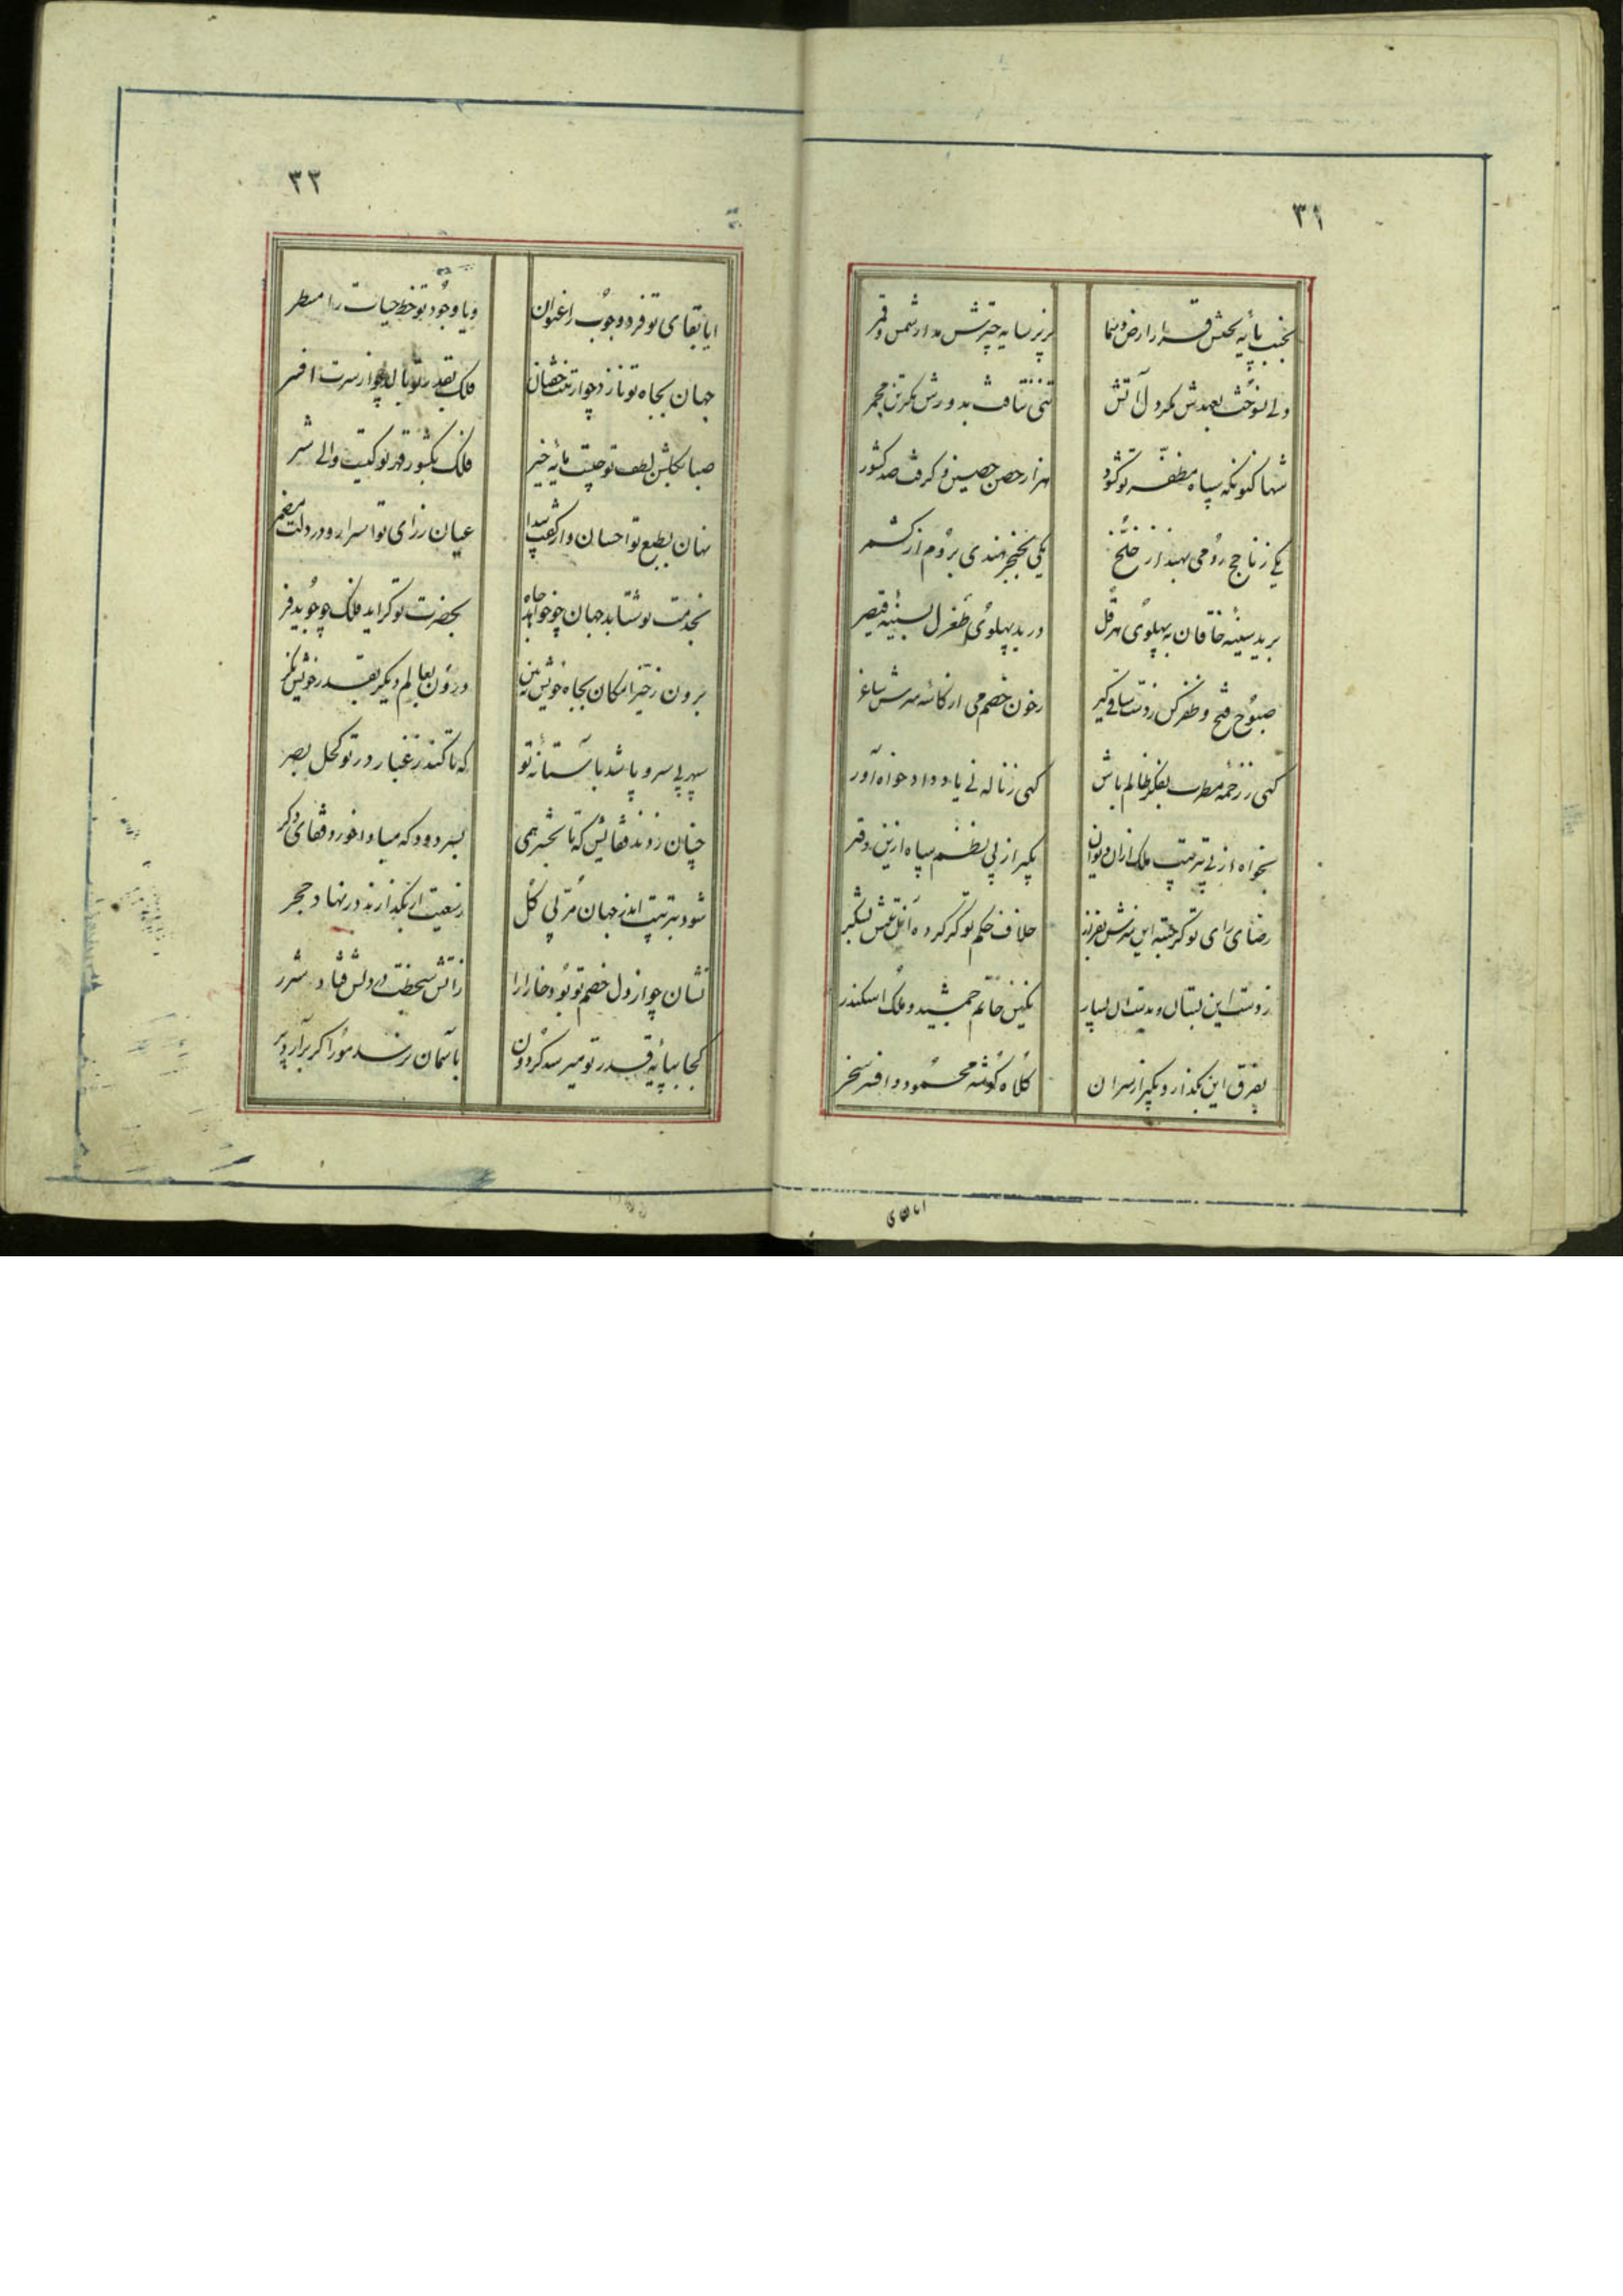 ۳۱
بجنب پایهٔ تختش قرار ارض و سما
بزیر سایه چترش مدار شمس و قمر
دلی نسوخت بعهدش مگر دل آتش
تنی نتافت بدورش مگر تن مجمر
شها کنونکه سپاه مظفر تو گشود
هزار حصن حصین و گرفت صد کشور
یکی بخنجر هندی بروم از کشمر
برید سینهٔ خاقان به پهلوی هرقل
درید پهلوی طغرل بسینهٔ قیصر
صبوح فتح و ظفر کن ز دست ساقی گیر
ز خون خصم می از کاسهٔ سرش ساغر
گهی ز زخمه مطرب بفکر ظالم باش
گهی ز ناله نی یاد دادخواه آور
بخواه از پی ترتیب ملک ازان دیوان
بگیر از پی نظم سپاه ازین دفتر
رضای رای تو گر جسته این سرش بفراز
خلاف حکم تو گر کرده آن تنش بشکر
ز دست این بستان و بدست آن بسپار
نگین خاتم جمشید و ملک اسکندر
بفرق این بگذار و بگیر از سر آن
کلاه گوشه محمود و افسر سنجر
ایا بقای
۳۳
ایا بقای تو فرد وجوب را عنوان
ویا وجود تو خط حیات را مسطر
جهان بجاه تو نازد چو از تنت خفتان
فلک بقدر تو بالد چو از سرت افسر
صبا بگلشن لطف تو چیست مایهٔ خیر
فلک بکشور قهر تو کیست والی شر
نهان بطبع تو احسان و از کفت پیدا
عیان ز رای تو اسرار و در دلت مضمر
بخدمت تو شتابد جهان چو خواهد جاه
بحضرت تو گراید فلک چو جوید فر
برون ز حیز امکان بجاه خویش ببین
درون بعالم دیگر بقدر خویش نگر
سپهر بی سر و پا شد بآستانهٔ تو
که تا کند ز غبار در تو کحل بصر
چنان زدند قفایش که تا بحشر همی
بسر دود که مبادا خورد قفای دگر
شود بتربیت اندر جهان مربی گل
نشان چو از دل خصم تو بود خارا را
ز آتش سخطت در دلش فتاد شرر
کجا بپایهٔ قدر تو میرسد گردون
بآسمان نرسد مور اگر برآرد پر